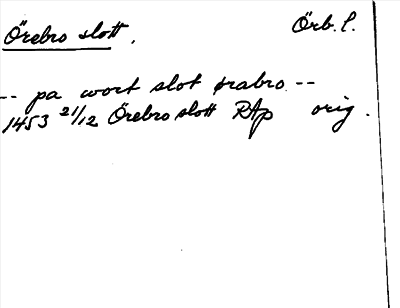 Örebro slott. Örb. l.
-- pa wort slot ørabro --
1453 21/12 Örebro slott RAp orig.